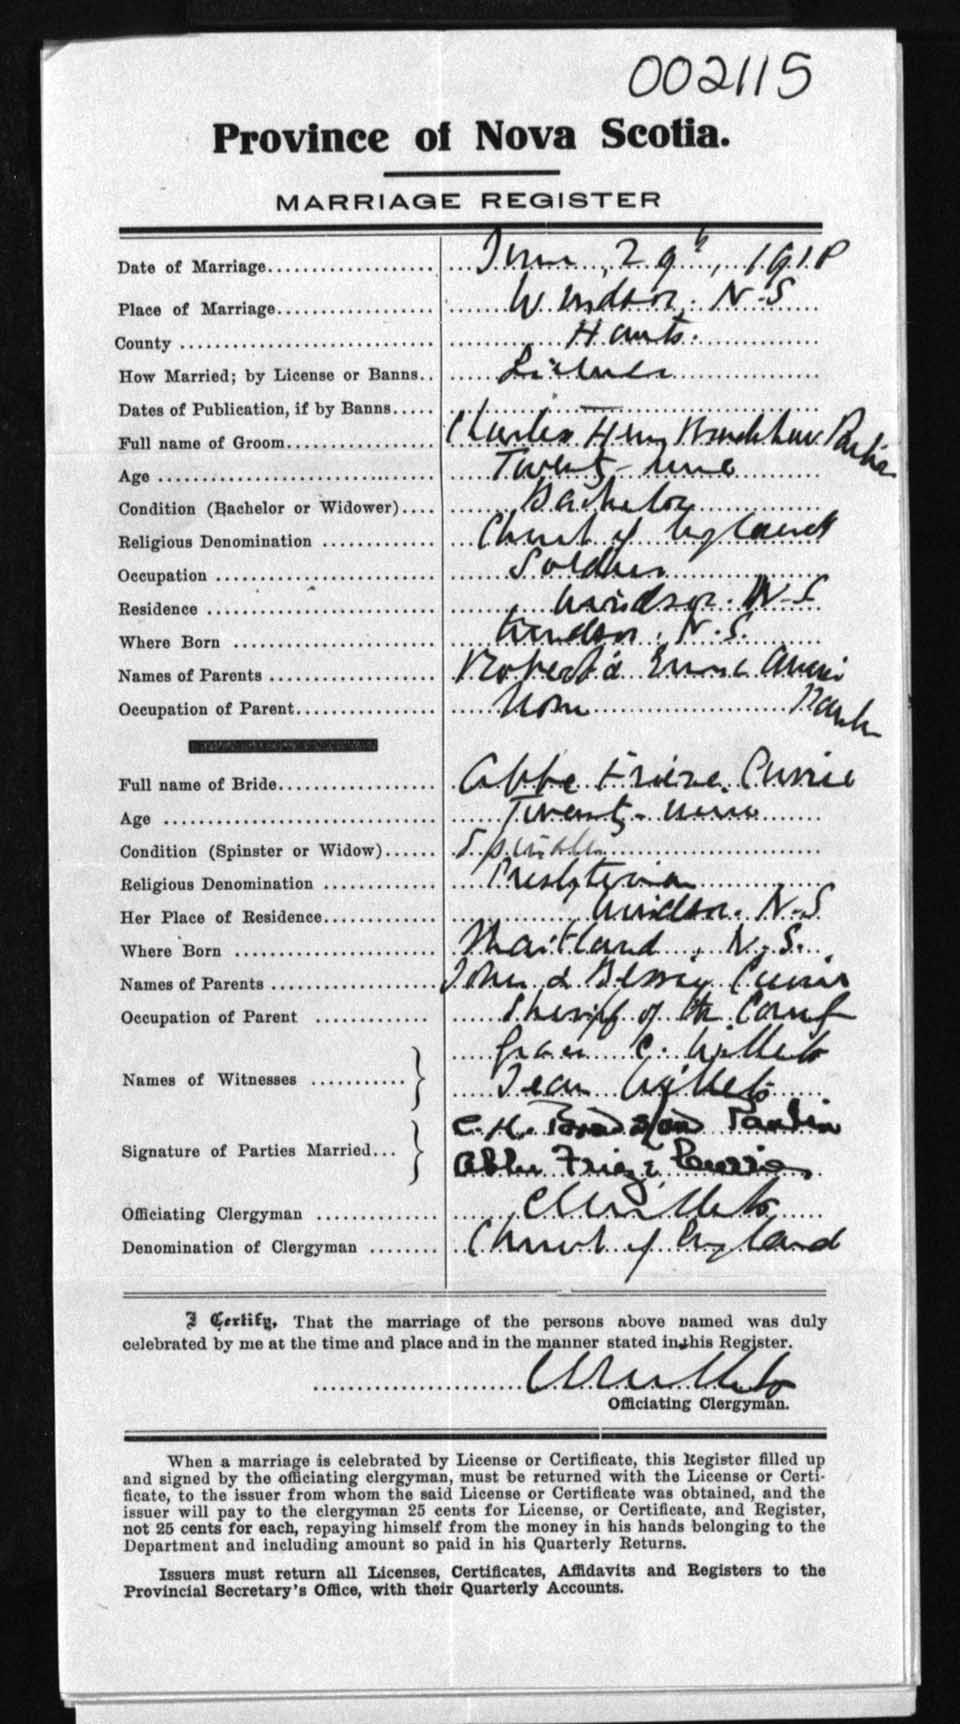 002115
Province of Nova Scotia.
MARRIAGE REGISTER
Date of Marriage June, 29th, 1918
Place of Marriage Windsor. N.S
County Hants.
How Married; by License or Banns License
Dates of Publication, if by Banns —
Full name of Groom Charles Henry
Age Twenty-nine
Condition (Bachelor or Widower) Bachelor
Religious Denomination Church of England
Occupation Soldier
Residence Windsor. N-S
Where Born Windsor, N.S.
Names of Parents Robert &
Occupation of Parent None
Full name of Bride Frieze Currie
Age Twenty-nine
Condition (Spinster or Widow) Spinster
Religious Denomination Presbyterian
Her Place of Residence Windsor. N-S
Where Born Maitland, N.S.
Names of Parents John & Bessie Currie
Occupation of Parent Sheriff of the County
Names of Witnesses C. Willets
Jean Willets
Signature of Parties Married C.H.
Frieze Currie
Officiating Clergyman Willets
Denomination of Clergyman Church of England
I Certify, That the marriage of the persons above named was duly
celebrated by me at the time and place and in the manner stated in this Register.
Willets
Officiating Clergyman.
When a marriage is celebrated by License or Certificate, this Register filled up
and signed by the officiating clergyman, must be returned with the License or Certi-
ficate, to the issuer from whom the said License or Certificate was obtained, and the
issuer will pay to the clergyman 25 cents for License, or Certificate, and Register,
not 25 cents for each, repaying himself from the money in his hands belonging to the
Department and including amount so paid in his Quarterly Returns.
Issuers must return all Licenses, Certificates, Affidavits and Registers to the
Provincial Secretary's Office, with their Quarterly Accounts.